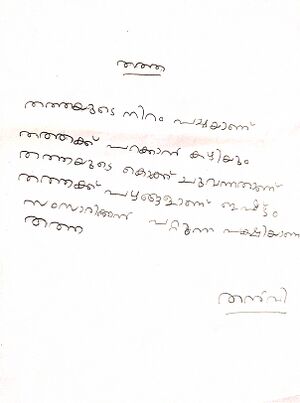 തത്ത
തത്തയുടെ നിറം പച്ചയാണ്
തത്തക്ക് പറക്കാൻ കഴിയും
തത്തയുടെ കൊക്ക് ചുവന്നതാണ്
തത്തക്ക് പഴങ്ങളാണ് ഇഷ്ടം
സംസാരിക്കാൻ പറ്റുന്ന പക്ഷിയാണ
തത്ത
തൻവി